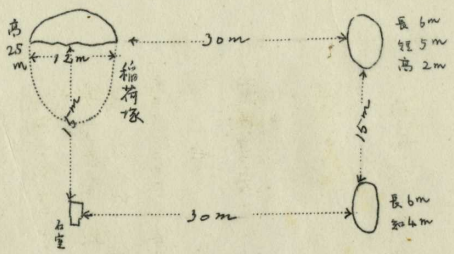 高
25
m
12m
稲荷塚
30m
長6m
短5m
高2m
15m
15m
石室
30m
長6m
短4m